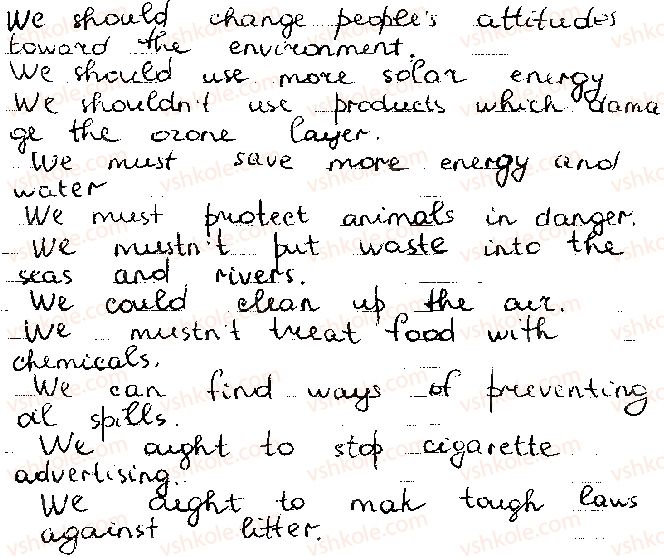 We should change people's attitudes
toward the environment.
We should use more solar energy
We shouldn't use products which dama
ge the ozone layer.
We must save more energy and
water
We must protect animals in danger.
We mustn't put waste into the
seas and rivers.
We could clean up the air.
We mustn't treat food with
chemicals.
We can find ways of preventing
oil spills.
We aught to stop cigarette
advertising.
We aught to mak tough laws
against litter.